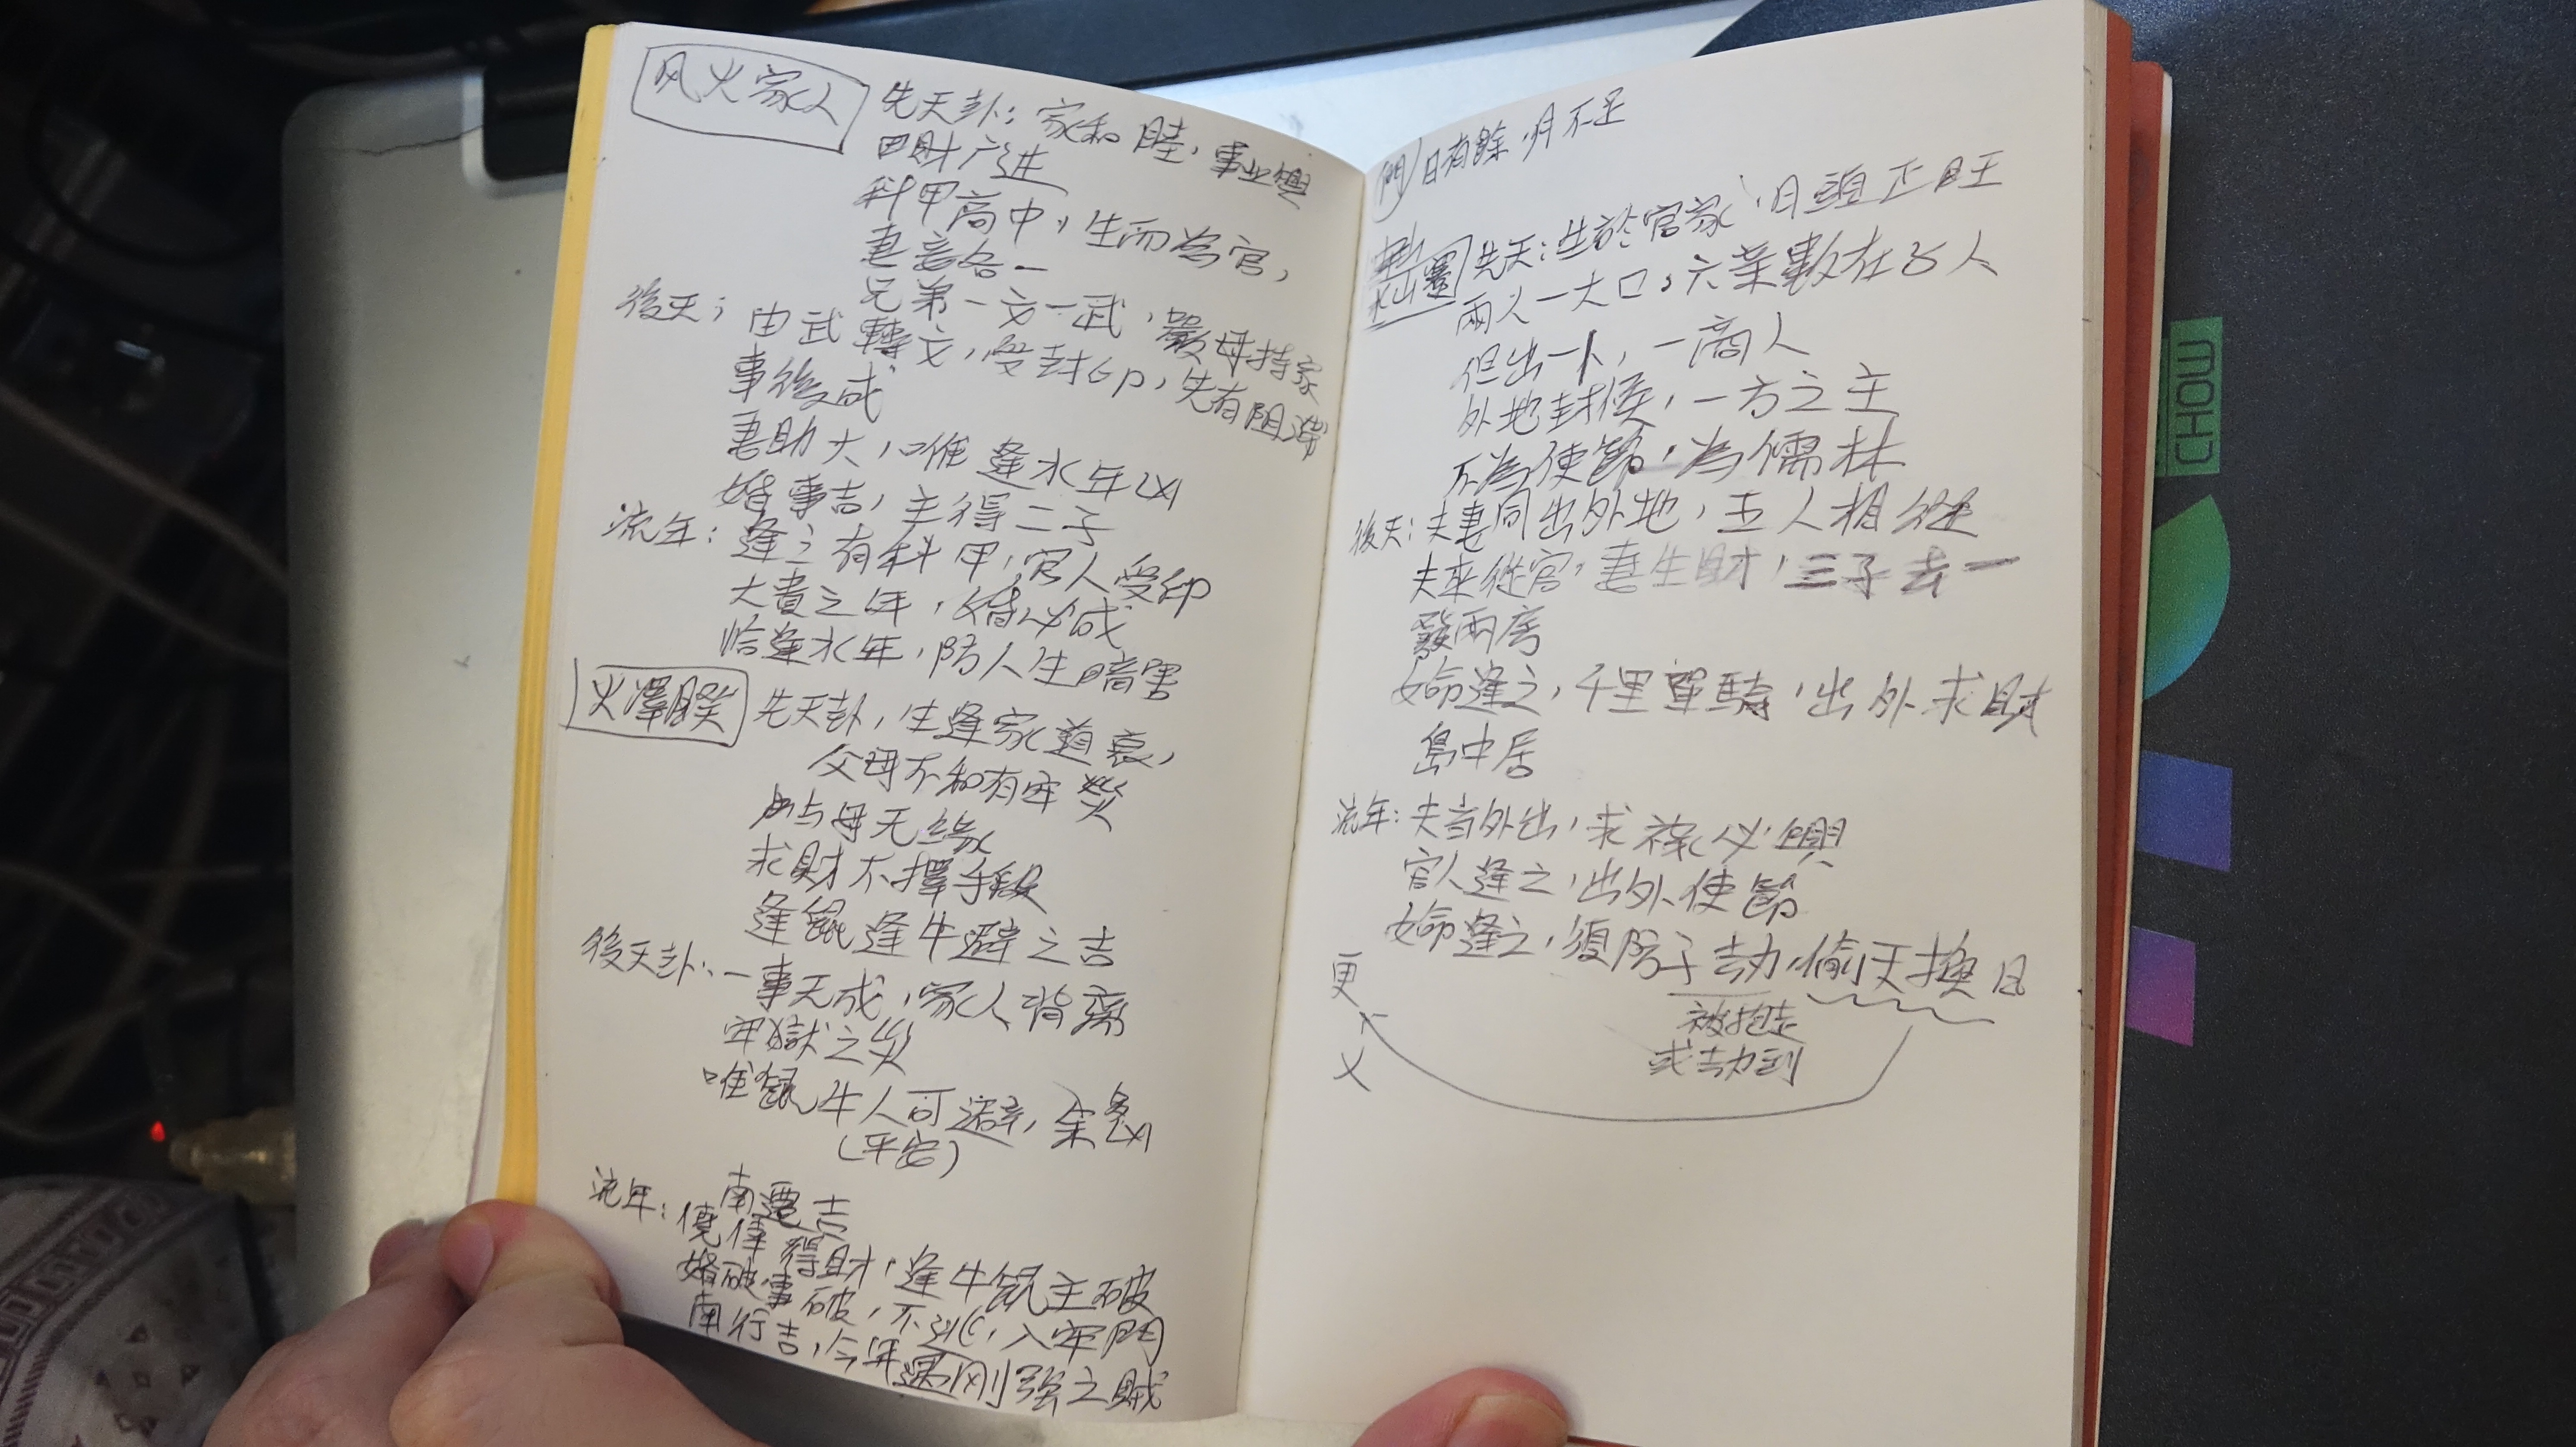 风火家人
先天卦：家和睦，事业興
四財广进
科甲高中，生而為官，
妻妾各一
兄弟一文一武，嚴母持家
後天；由武轉文，受封印，先有阻滞
事後成
妻助大，唯逢水年凶
婚事吉，主得二子
流年：逢之有科甲，官人受印
大貴之年，婚必成
恰逢水年，防人生暗害
火澤睽
先天卦，生逢家道衰，
父母不和有牢災
与母无緣
求財不擇手段
逢鼠逢牛避之吉
後天卦、一事无成，家人背离
牢獄之災
唯鼠牛人可避，余多凶
（平安）
流年：南遷吉
僥倖得財，逢牛鼠主破
婚破事破，不逃，入牢門
南行吉，今年遇刚强之賊
日有餘，月不足
水山蹇
先天：生於官家，日頭正旺
兩人一大口，六業數在百人
但出一人，一商人
外地封侯，一方之主
不為使節，為儒林
後天：夫妻同出外地，五人相從
夫來從官，妻生財，三子去一
發兩房
女命逢之，千里單騎，出外求財
島中居
流年：夫音外出，求祿必興
官人逢之，出外使節
女命逢之，須防子劫，偷天换日
被抱走
或劫到
更
父
CHOW